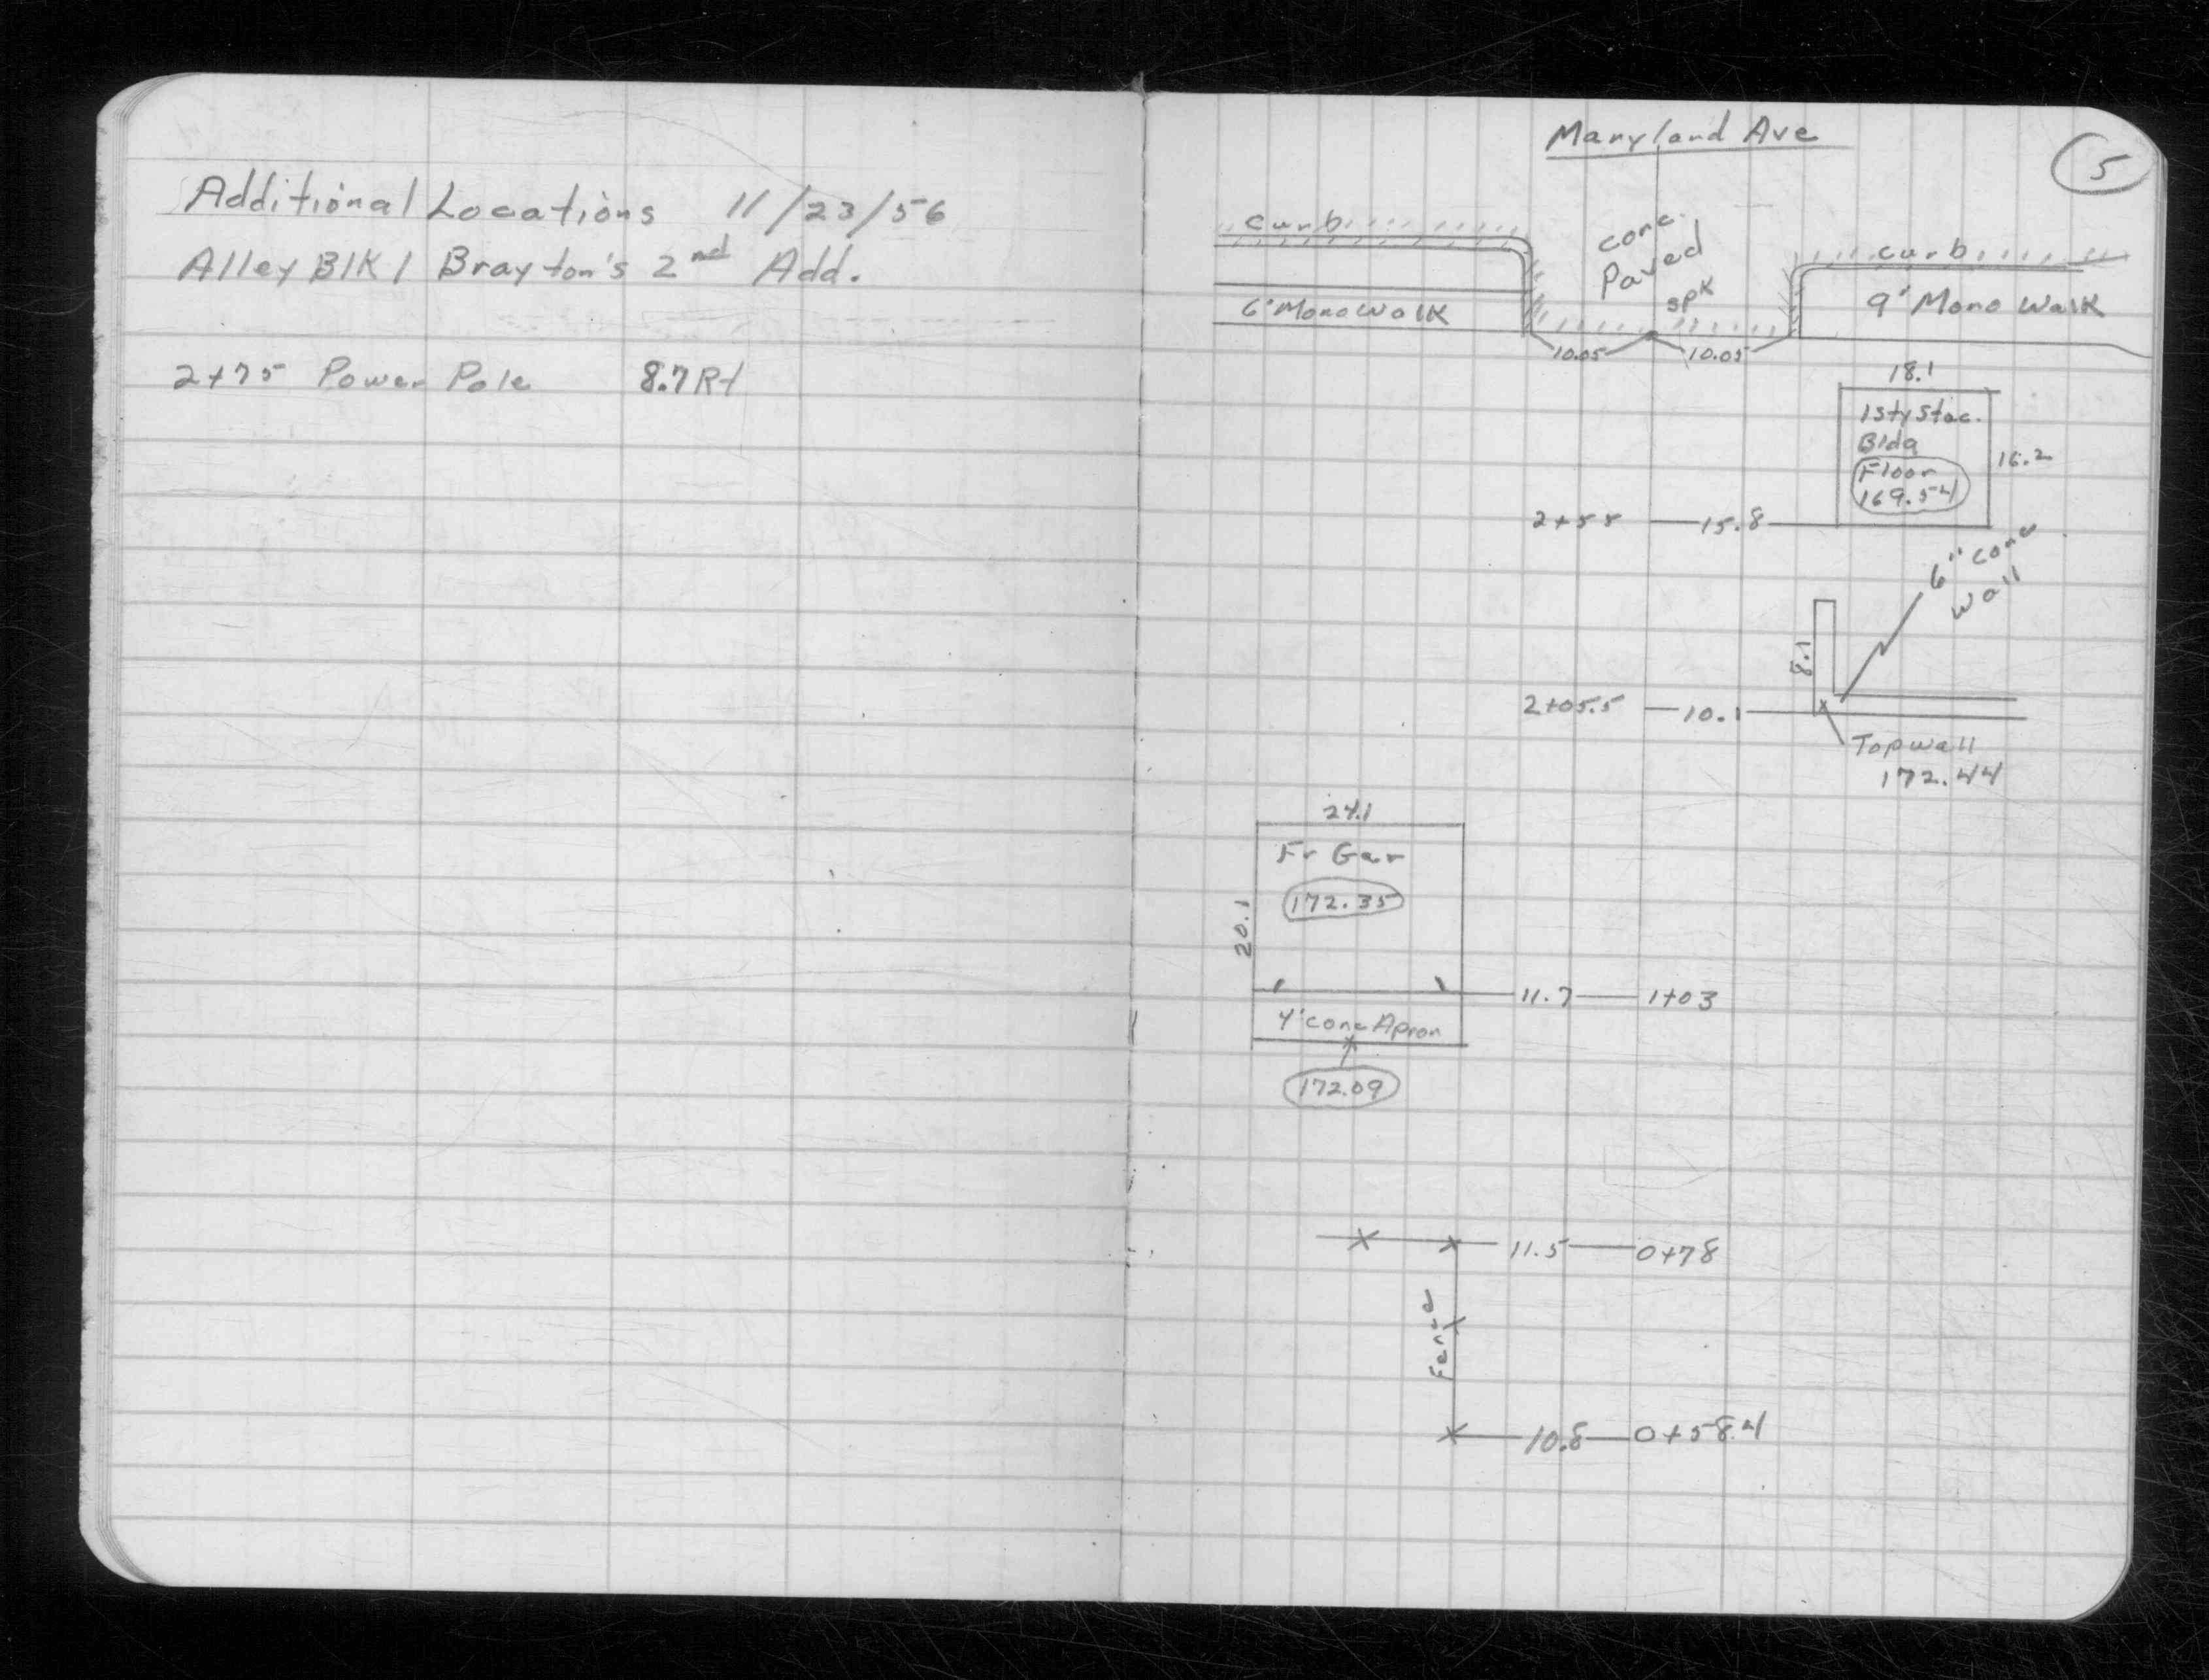 Additional Locations 11/23/56
Alley Blk 1 Brayton's 2nd Add.
2+75 Power Pole 8.7 Rt
Maryland Ave
5
curb
conc.
Paved
spk
curb
6' Mono Walk
9' Mono Walk
10.05
10.05
18.1
1 sty Stuc.
Bldg
Floor
169.54
16.2
2+55 15.8
6" conc
Wall
8.1
2+05.5 10.1
Top wall
172.44
24.1
Fr Gar
172.35
20.1
11.7 1+03
4' conc Apron
172.09
11.5 0+78
Fence
10.8 0+58.4